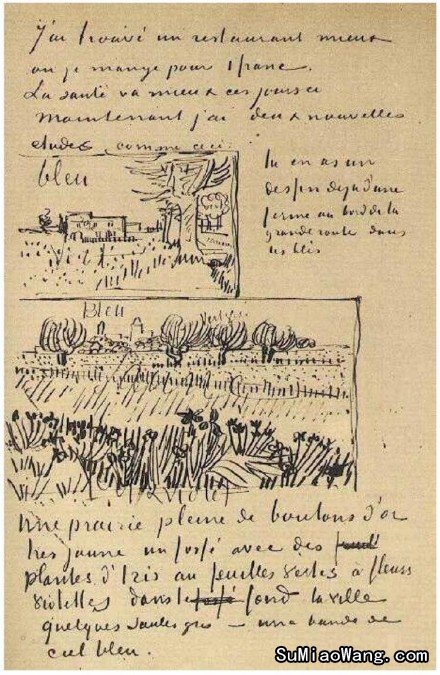 J'ai trouvé un restaurant mieux
ou je mange pour 1 franc.
La santé va mieux ces jours ci
Maintenant j'ai deux nouvelles
etudes comme ceci
bleu
tu en as un
dessin deja d'une
ferme au bord de la
grande route dans
les blés
Bleu
violet
Une prairie pleine de boutons d'or
tres jaune un fossé avec des
plantes d'Iris au feuilles vertes à fleurs
violettes dans le fond la ville
quelques saules gris – une bande de
ciel bleu.
SuMiaoWang.com